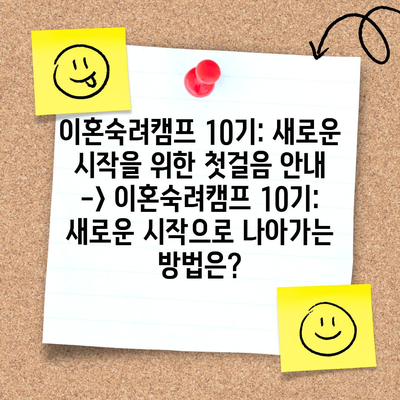 이혼숙려캠프 10기: 새로운
시작을 위한 첫걸음 안내
-> 이혼숙려캠프 10기:
새로운 시작으로 나아가는
방법은?